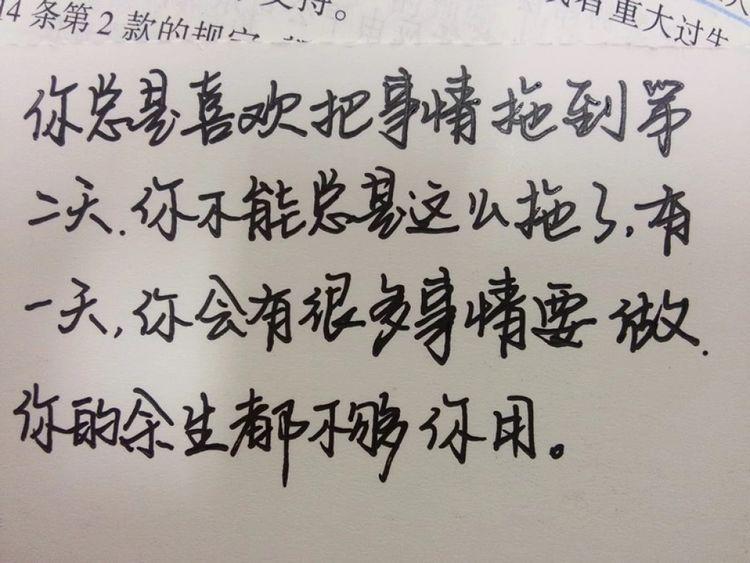 支持。
14 条第 2 款的规定
重大过失
你总是喜欢把事情拖到第
二天.你不能总是这么拖了,有
一天,你会有很多事情要做.
你的余生都不够你用。